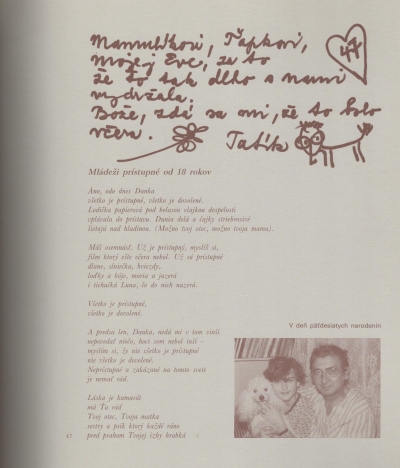 Mamulíkovi, Ťapkovi,
mojej Eve, za to
že to tak dlho s nami
vydržala.
Bože, zdá sa mi, že to bolo
včera.
Tatík
47
Mládeži prístupné od 18 rokov
Áno, odo dnes Danka
všetko je prístupné, všetko je dovolené.
Lodička papierová pod belasou vlajkou dospelosti
vplávala do prístavu. Dunia delá a čajky striebristé
lietajú nad hladinou. (Možno tvoj otec, možno tvoja mama).
Máš osemnásť. Už je prístupný, myslíš si,
film ktorý ešte včera nebol. Už sú prístupné
dlane, slniečka, hviezdy,
loďky a bóje, moria a jazerá
i tichučká Luna, čo do nich nazerá.
Všetko je prístupné,
všetko je dovolené.
A predsa len, Danka, nedá mi v tom vírili
nepovedať niečo, hoci som nebol iný –
myslím si, že nie všetko je prístupné
nie všetko je dovolené.
Neprístupné a zakázané na tomto svete
je nemať rád.
Láska je kamarát
má Ťa rád
Tvoj otec, Tvoja matka
sestry a psík ktorý každé ráno
pred prahom Tvojej izby hrabká
V deň päťdesiatych narodenín